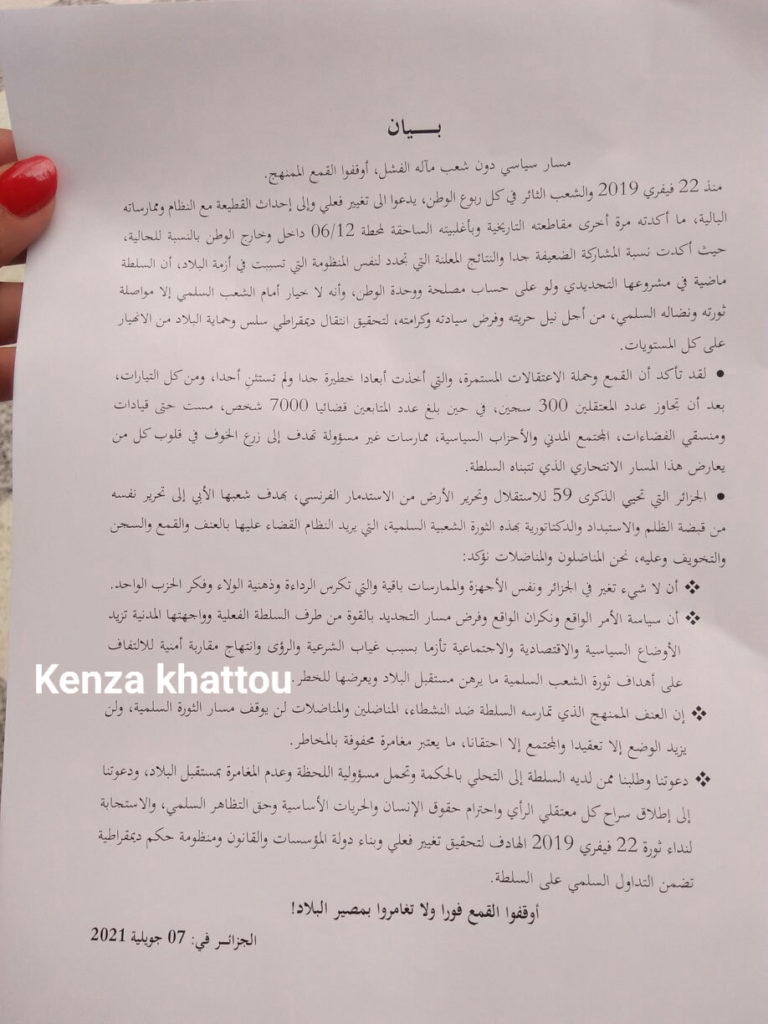 بـــيان
مسار سياسي دون شعب مآله الفشل، أوقفوا القمع الممنهج.
منذ 22 فيفري 2019 والشعب الثائر في كل ربوع الوطن، يدعوا الى تغيير فعلي وإلى إحداث القطيعة مع النظام وممارساته
البالية، ما أكدته مرة أخرى مقاطعته التاريخية وبأغلبيته الساحقة لمحطة 06/12 داخل وخارج الوطن بالنسبة للجالية،
حيث أكدت نسبة المشاركة الضعيفة جدا والنتائج المعلنة التي تجدد لنفس المنظومة التي تسببت في أزمة البلاد، أن السلطة
ماضية في مشروعها التجديدي ولو على حساب مصلحة ووحدة الوطن، وأنه لا خيار أمام الشعب السلمي إلا مواصلة
ثورته ونضاله السلمي، من أجل نيل حريته وفرض سيادته وكرامته، لتحقيق انتقال ديمقراطي سلس وحماية البلاد من الانهيار
على كل المستويات.
• لقد تأكد أن القمع وحملة الاعتقالات المستمرة، والتي أخذت أبعادا خطيرة جدا ولم تستثن أحدا، ومن كل التيارات،
بعد أن تجاوز عدد المعتقلين 300 سجين، في حين بلغ عدد المتابعين قضائيا 7000 شخص، مست حتى قيادات
ومنسقي الفضاءات، المجتمع المدني والأحزاب السياسية، ممارسات غير مسؤولة تهدف إلى زرع الخوف في قلوب كل من
يعارض هذا المسار الانتحاري الذي تتبناه السلطة.
• الجزائر التي تحيي الذكرى 59 للاستقلال وتحرير الأرض من الاستدمار الفرنسي، يهدف شعبها الأبي إلى تحرير نفسه
من قبضة الظلم والاستبداد والدكتاتورية بهذه الثورة الشعبية السلمية، التي يريد النظام القضاء عليها بالعنف والقمع والسجن
والتخويف وعليه، نحن المناضلون والمناضلات نؤكد:
❖ أن لا شيء تغير في الجزائر ونفس الأجهزة والممارسات باقية والتي تكرس الرداءة وذهنية الولاء وفكر الحزب الواحد.
❖ أن سياسة الأمر الواقع ونكران الواقع وفرض مسار التجديد بالقوة من طرف السلطة الفعلية وواجهتها المدنية تزيد
الأوضاع السياسية والاقتصادية والاجتماعية تأزما بسبب غياب الشرعية والرؤى وانتهاج مقاربة أمنية للالتفاف
على أهداف ثورة الشعب السلمية ما يرهن مستقبل البلاد ويعرضها للخطر.
Kenza khattou
❖ إن العنف الممنهج الذي تمارسه السلطة ضد النشطاء، المناضلين والمناضلات لن يوقف مسار الثورة السلمية، ولن
يزيد الوضع إلا تعقيدا والمجتمع إلا احتقانا، ما يعتبر مغامرة محفوفة بالمخاطر.
❖ دعوتنا وطلبنا ممن لديه السلطة إلى التحلي بالحكمة وتحمل مسؤولية اللحظة وعدم المغامرة بمستقبل البلاد، ودعوتنا
إلى إطلاق سراح كل معتقلي الرأي واحترام حقوق الإنسان والحريات الأساسية وحق التظاهر السلمي، والاستجابة
لنداء ثورة 22 فيفري 2019 الهادف لتحقيق تغيير فعلي وبناء دولة المؤسسات والقانون ومنظومة حكم ديمقراطية
تضمن التداول السلمي على السلطة.
أوقفوا القمع فورا ولا تغامروا بمصير البلاد!
الجزائـر في: 07 جويلية 2021